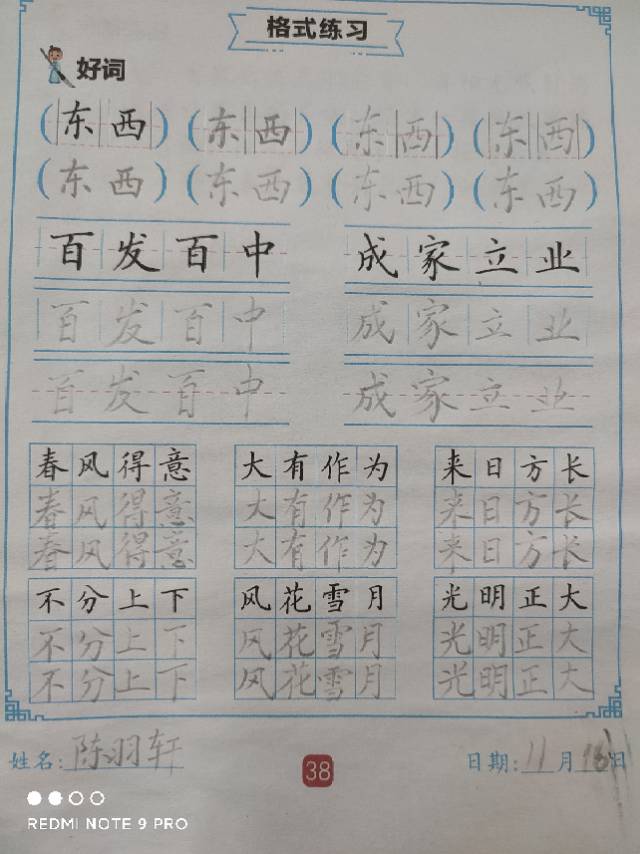 格式练习
好词
(东西) (东西) (东西) (东西)
(东西) (东西) (东西) (东西)
百发百中 成家立业
百发百中 成家立业
百发百中 成家立业
春风得意 大有作为 来日方长
春风得意 大有作为 来日方长
春风得意 大有作为 来日方长
不分上下 风花雪月 光明正大
不分上下 风花雪月 光明正大
不分上下 风花雪月 光明正大
姓名:陈羽轩 38 日期:11月18日
REDMI NOTE 9 PRO